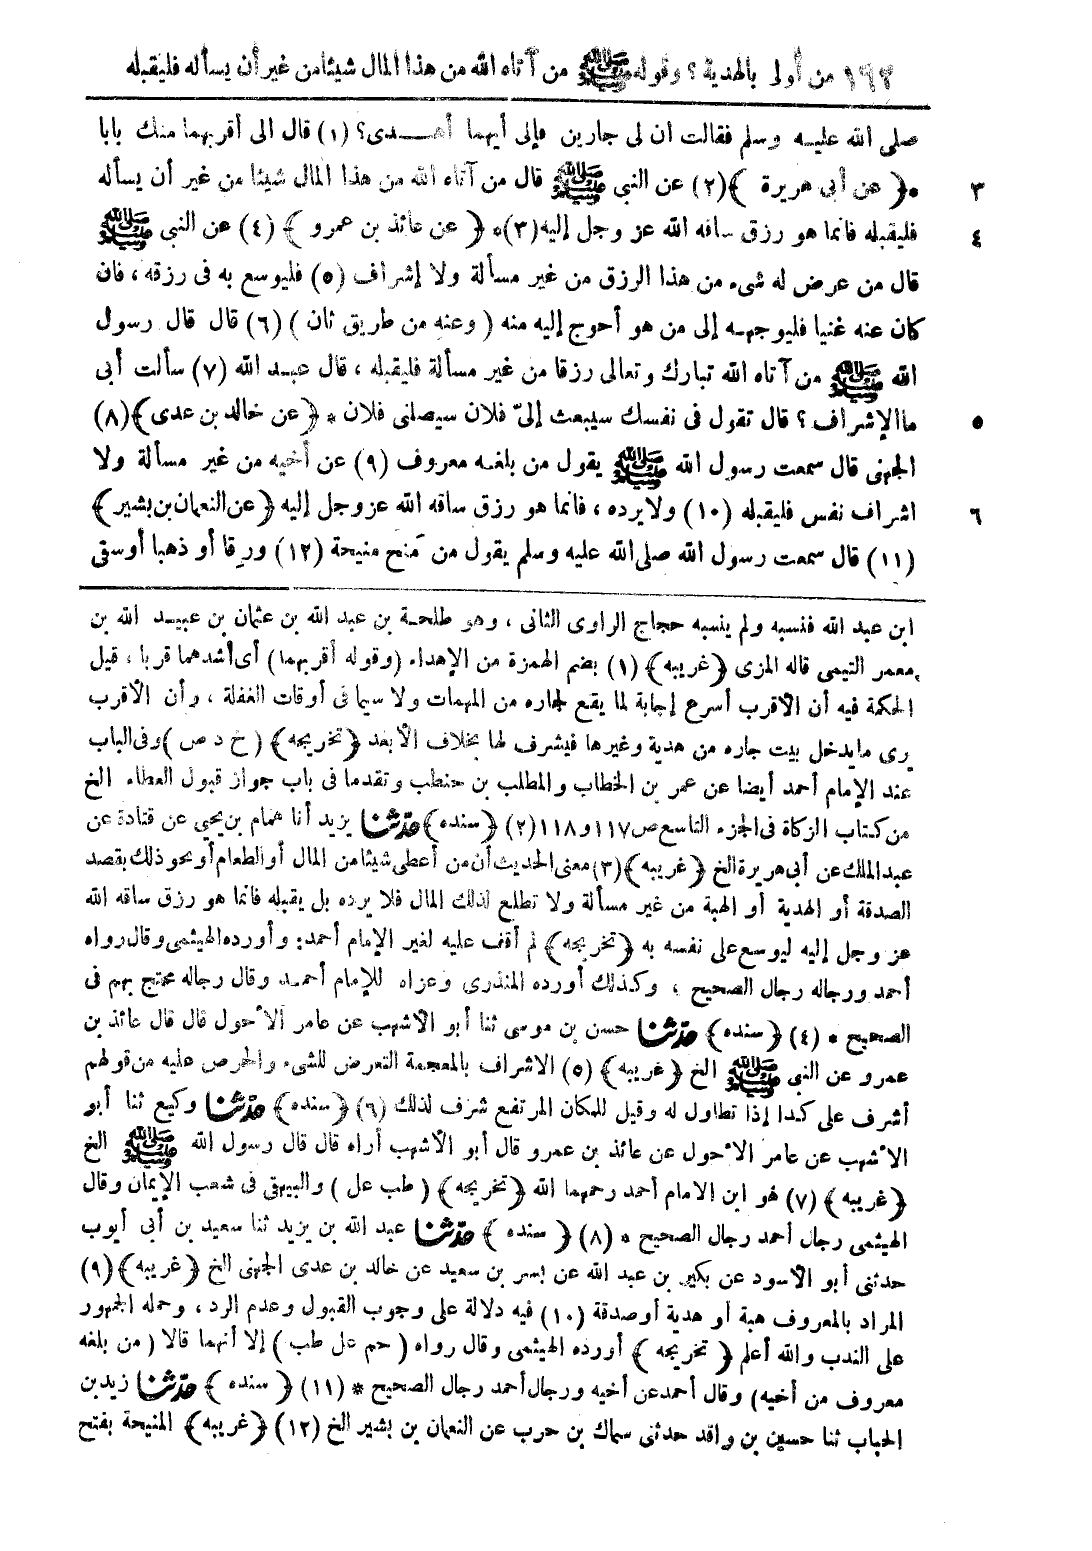 ١٦٢ من أولى بالهدية ؟ وقوله ﷺ من آتاه الله من هذا المال شيئا من غير أن يسأله فليقبله
صلى الله عليه وسلم فقالت ان لى جارين فإلى أيهما أهدى؟ (١) قال الى أقربهما منك بابا
٣ *﴿ عن أبى هريرة ﴾(٢) عن النبى ﷺ قال من آتاه الله من هذا المال شيئا من غير أن يسأله
٤ فليقبله فانما هو رزق ساقه الله عز وجل إليه(٣)* ﴿ عن عائذ بن عمرو ﴾ (٤) عن النبى ﷺ
قال من عرض له شىء من هذا الرزق من غير مسألة ولا إشراف (٥) فليوسع به فى رزقه ، فان
كان عنه غنيا فليوجهه إلى من هو أحوج إليه منه ( وعنه من طريق ثان ) (٦) قال قال رسول
الله ﷺ من آتاه الله تبارك وتعالى رزقا من غير مسألة فليقبله ، قال عبد الله (٧) سألت أبى
٥ ما الإشراف ؟ قال تقول فى نفسك سيبعث إلىّ فلان سيصلنى فلان * ﴿عن خالد بن عدى﴾(٨)
الجهنى قال سمعت رسول الله ﷺ يقول من بلغه معروف (٩) عن أخيه من غير مسألة ولا
٦ اشراف نفس فليقبله (١٠) ولا يرده ، فانما هو رزق ساقه الله عز وجل إليه ﴿عن النعمان بن بشير﴾
(١١) قال سمعت رسول الله صلى الله عليه وسلم يقول من مَنح منيحة (١٢) ورِقا أو ذهبا أو سقى
ابن عبد الله فنسبه ولم ينسبه حجاج الراوى الثانى ، وهو طلحة بن عبد الله بن عثمان بن عبيد الله بن
معمر التيمى قاله المزى ﴿غريبه﴾ (١) بضم الهمزة من الإهداء (وقوله أقربهما) أى أشدهما قربا ، قيل
الحكمة فيه أن الأقرب أسرع إجابة لما يقع لجاره من المهمات ولا سيما فى أوقات الغفلة ، وأن الأقرب
يرى ما يدخل بيت جاره من هدية وغيرها فيشرف لها بخلاف الأبعد ﴿تخريجه﴾ (خ د ص) وفى الباب
عند الإمام أحمد أيضا عن عمر بن الخطاب والمطلب بن حنطب وتقدما فى باب جواز قبول العطاء الخ
من كتاب الزكاة فى الجزء التاسع ص ١١٧ و ١١٨ (٢) ﴿سنده﴾ حدثنا يزيد أنا همام بن يحيى عن قتادة عن
عبد الملك عن أبى هريرة الخ ﴿غريبه﴾ (٣) معنى الحديث أن من أعطى شيئا من المال أو الطعام أو نحو ذلك بقصد
الصدقة أو الهدية أو الهبة من غير مسألة ولا تطلع لذلك المال فلا يرده بل يقبله فانما هو رزق ساقه الله
عز وجل إليه ليوسع على نفسه به ﴿تخريجه﴾ لم أقف عليه لغير الإمام أحمد: وأورده الهيثمى وقال رواه
أحمد ورجاله رجال الصحيح ، وكذلك أورده المنذرى وعزاه للإمام أحمد وقال رجاله محتج بهم فى
الصحيح * (٤) ﴿سنده﴾ حدثنا حسن بن موسى ثنا أبو الاشهب عن عامر الأحول قال قال عائذ بن
عمرو عن النبى ﷺ الخ ﴿غريبه﴾ (٥) الاشراف بالمعجمة التعرض للشىء والحرص عليه من قولهم
أشرف على كذا إذا تطاول له وقيل للمكان المرتفع شرف لذلك (٦) ﴿سنده﴾ حدثنا وكيع ثنا أبو
الأشهب عن عامر الأحول عن عائذ بن عمرو قال أبو الأشهب أراه قال قال رسول الله ﷺ الخ
﴿غريبه﴾ (٧) هو ابن الامام أحمد رحمهما الله ﴿تخريجه﴾ (طب عل) والبيهقى فى شعب الإيمان وقال
الهيثمى رجال أحمد رجال الصحيح * (٨) ﴿ سنده ﴾ حدثنا عبد الله بن يزيد ثنا سعيد بن أبى أيوب
حدثنى أبو الاسود عن بكير بن عبد الله عن بسر بن سعيد عن خالد بن عدى الجهنى الخ ﴿غريبه﴾(٩)
المراد بالمعروف هبة أو هدية أو صدقة (١٠) فيه دلالة على وجوب القبول وعدم الرد ، وحمله الجمهور
على الندب والله أعلم ﴿ تخريجه ﴾ أورده الهيثمى وقال رواه ( حم عل طب ) إلا أنهما قالا ( من بلغه
معروف من أخيه) وقال أحمد عن أخيه ورجال أحمد رجال الصحيح * (١١) ﴿ سنده ﴾ حدثنا زيد بن
الحباب ثنا حسين بن واقد حدثنى سماك بن حرب عن النعمان بن بشير الخ (١٢) ﴿غريبه﴾ المنيحة بفتح